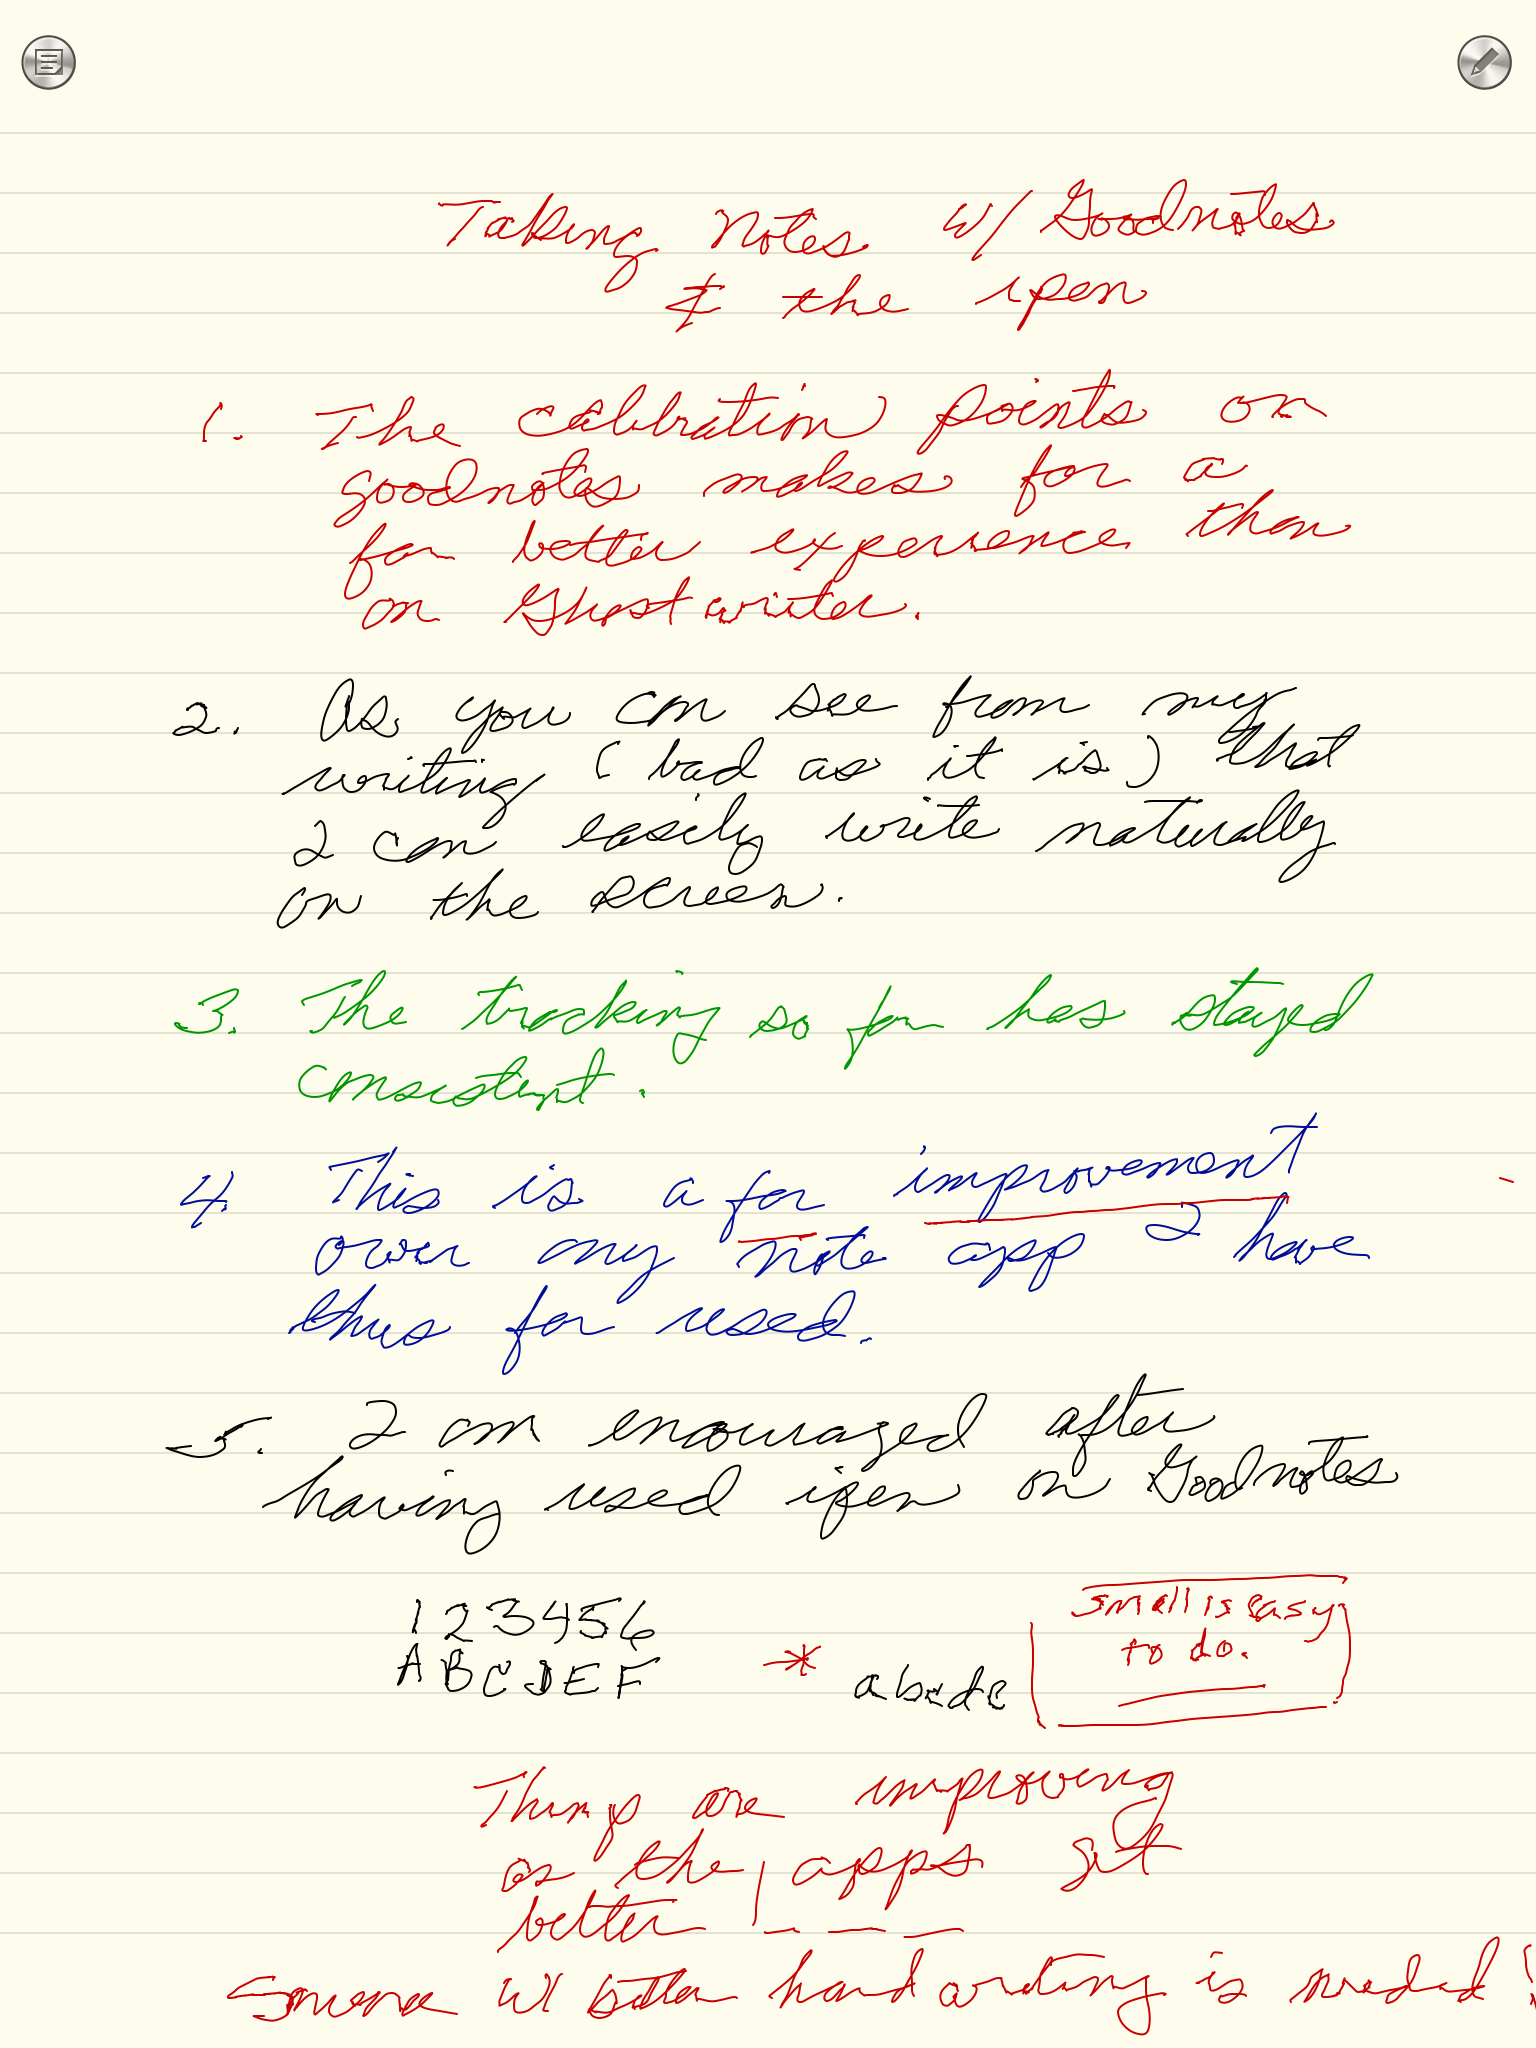 Taking Notes w/ Goodnotes
& the ipen
1. The calibration points on
goodnotes makes for a
far better experience than
on Ghostwriter.
2. As you can see from my
writing (bad as it is) that
I can easily write naturally
on the screen.
3. The tracking so far has stayed
consistent.
4. This is a far improvement
over any note app I have
thus far used.
5. I am encouraged after
having used ipen on Goodnotes
1 2 3 4 5 6
A B C D E F
* abcde
Small is easy
to do.
Things are improving
as the apps get
better
Someone w/ better handwriting is needed!